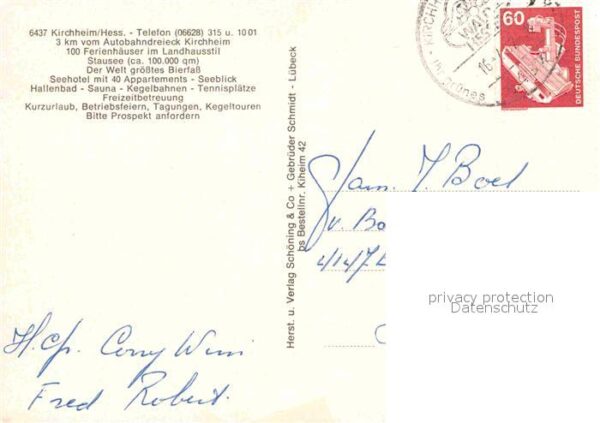 6437 Kirchheim/Hess. - Telefon (06628) 315 u. 10 01
3 km vom Autobahndreieck Kirchheim
100 Ferienhäuser im Landhausstil
Stausee (ca. 100.000 qm)
Der Welt größtes Bierfaß
Seehotel mit 40 Appartements - Seeblick
Hallenbad - Sauna - Kegelbahnen - Tennisplätze
Freizeitbetreuung
Kurzurlaub, Betriebsfeiern, Tagungen, Kegeltouren
Bitte Prospekt anfordern
H.Gr. Corry Wim
Fred Robert.
Herst. u. Verlag Schöning & Co + Gebrüder Schmidt - Lübeck
bs Bestellnr. Kiheim 42
KIRCHH
Ihr grünes
60
DEUTSCHE BUNDESPOST
Fam. J. Boel
v. Bo
privacy protection
Datenschutz